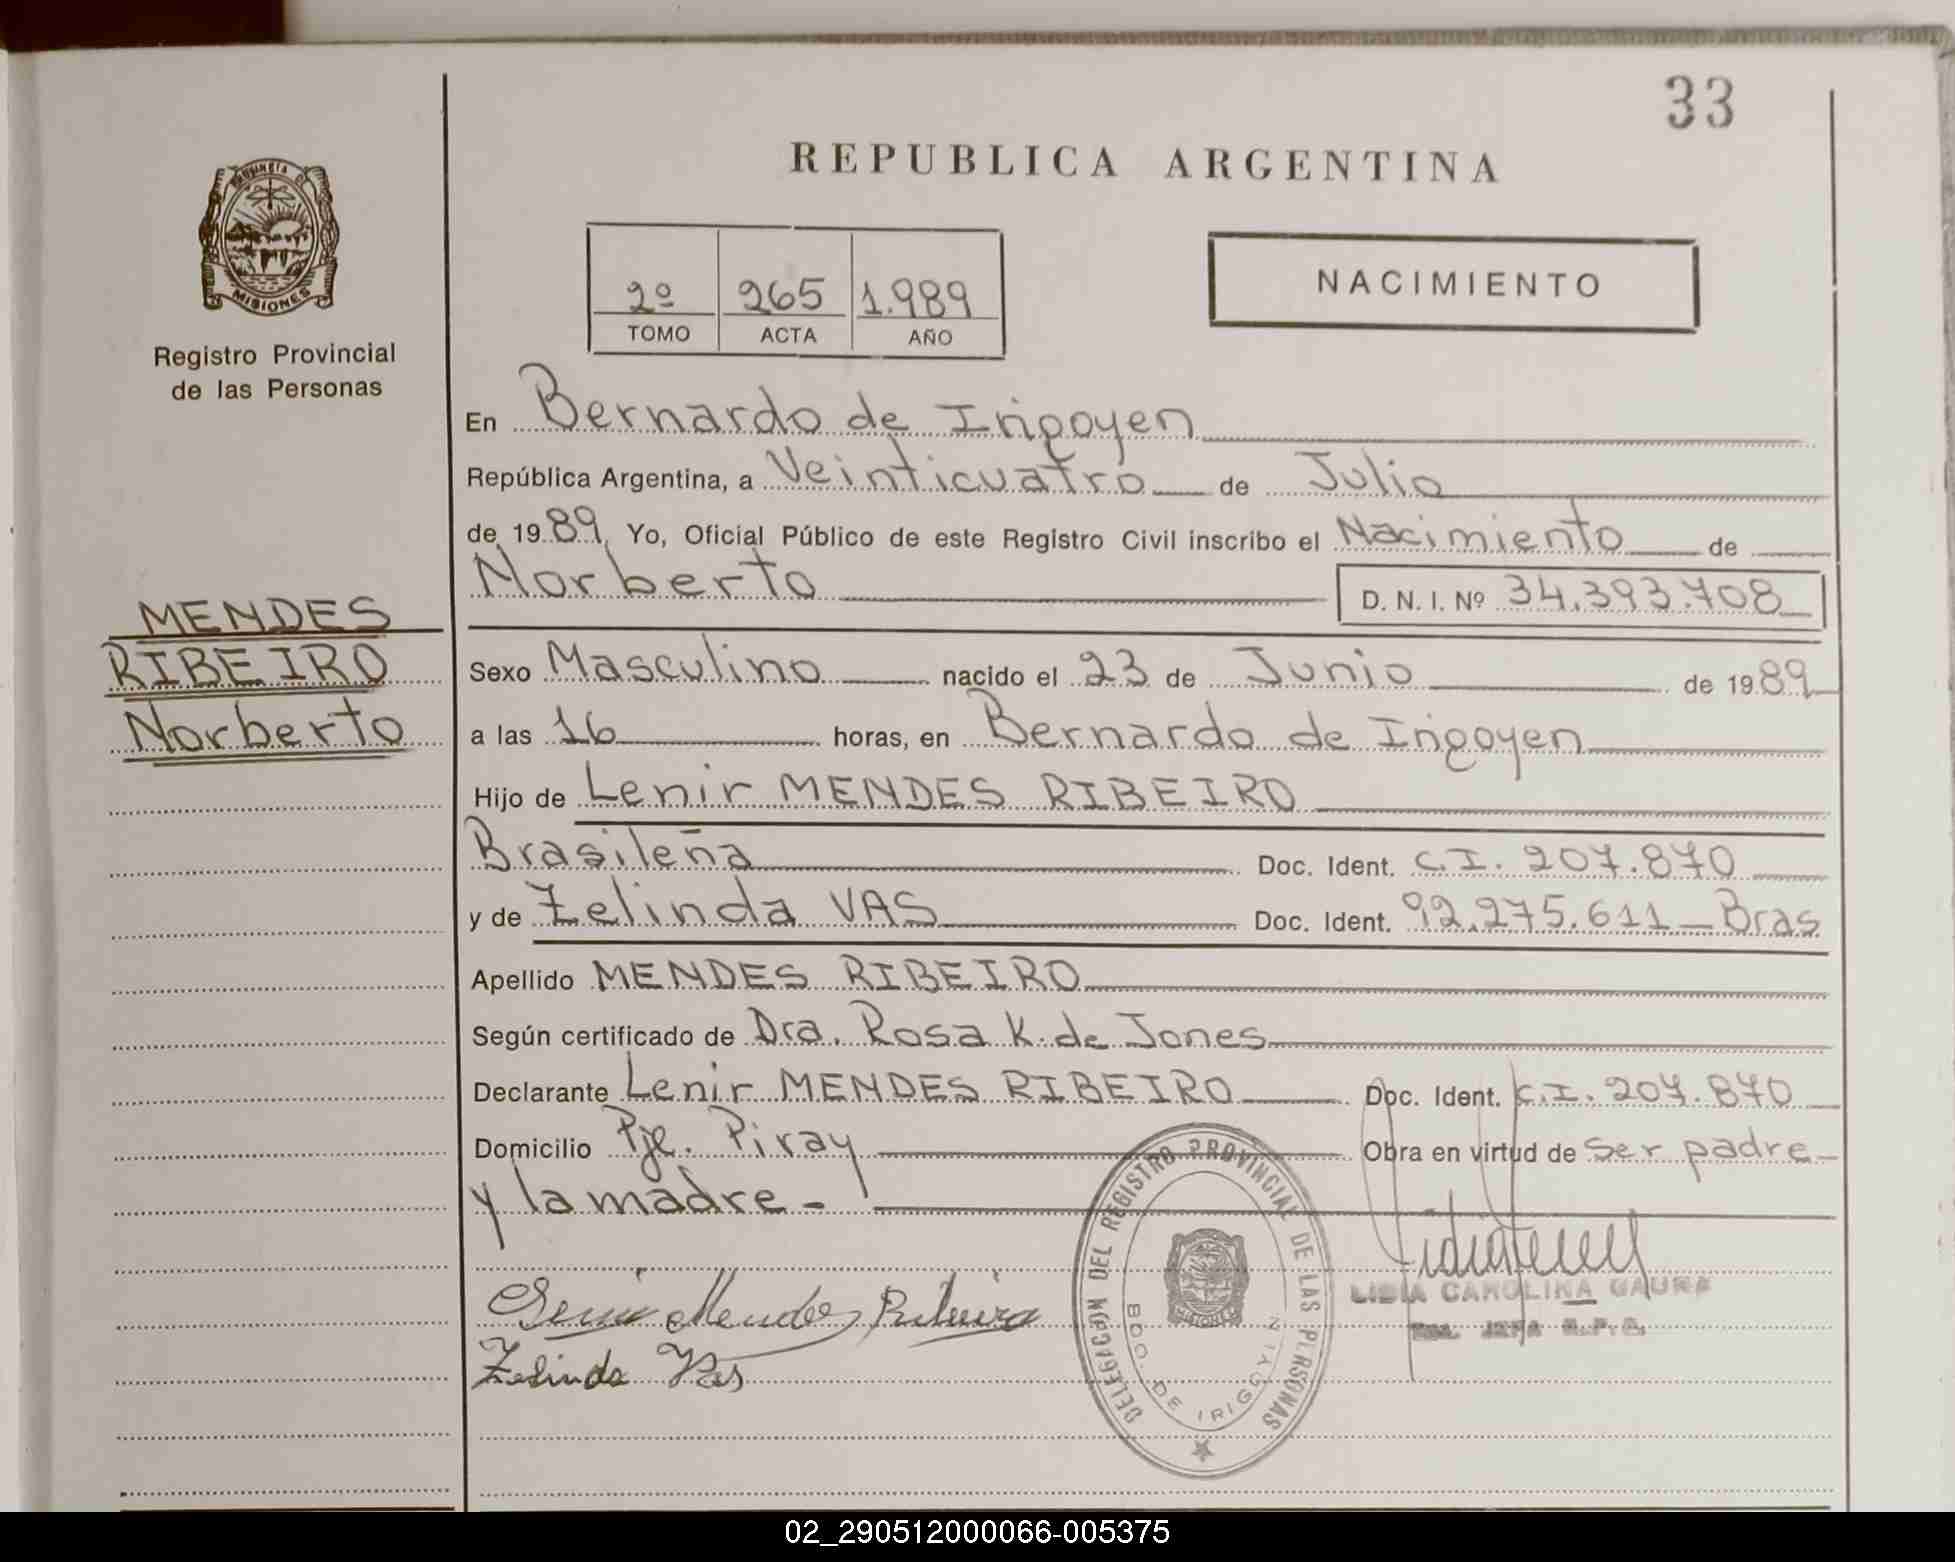 33
REPUBLICA ARGENTINA
PROVINCIA DE
MISIONES
Registro Provincial
de las Personas
2º 265 1.989
TOMO ACTA AÑO
NACIMIENTO
MENDES
RIBEIRO
Norberto
En Bernardo de Irigoyen
República Argentina, a Veinticuatro de Julio
de 1989. Yo, Oficial Público de este Registro Civil inscribo el Nacimiento de
Norberto D. N. I. Nº 34.393.708
Sexo Masculino nacido el 23 de Junio de 1989
a las 16 horas, en Bernardo de Irigoyen
Hijo de Lenir MENDES RIBEIRO
Brasileña Doc. Ident. C.I. 207.870
y de Zelinda VAS Doc. Ident. 92.275.611 - Bras
Apellido MENDES RIBEIRO
Según certificado de Dra. Rosa K. de Jones
Declarante Lenir MENDES RIBEIRO Doc. Ident. C.I. 207.870
Domicilio Pje. Piray Obra en virtud de ser padre
y la madre -
DELEGACION DEL REGISTRO PROVINCIAL DE LAS PERSONAS
BDO. DE IRIGOYEN
MISIONES
LIDIA CAROLINA GAUNA
JEFA R.P.P.
Lenir Mendes Ribeiro
Zelinda Vas
02_290512000066-005375